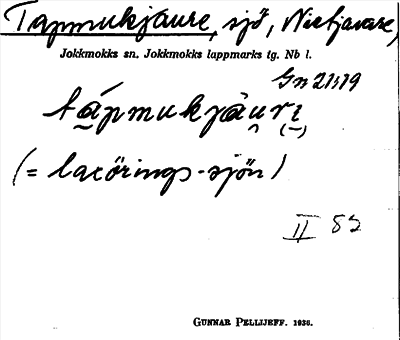 Tapmukjaure, sjö, Nietjavare,
Jokkmokks sn. Jokkmokks lappmarks tg. Nb l.
Gn 21119
tápmukjàuri
(= laxörings-sjön)
II 83
GUNNAR PELLIJEFF. 1936.